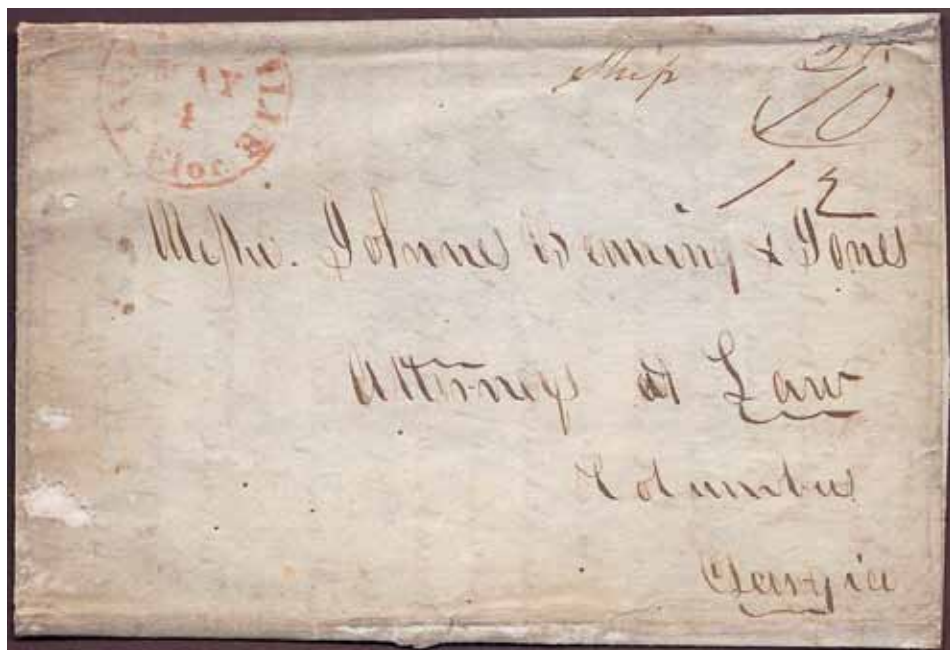 Ship
10
12
Messrs. Johnes Benning & Jones
Attorneys at Law
Columbus
Georgia